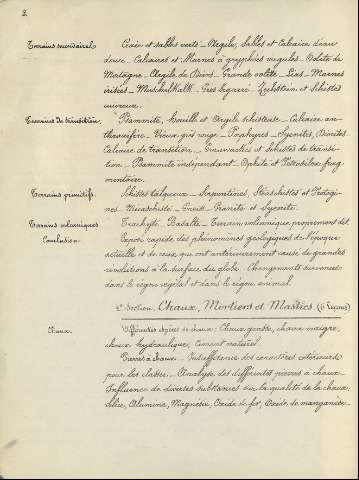 2.
Terrains secondaires
Craie et sables verts _ Argile, Sables et Calcaire d'eau
douce _ Calcaires et Marnes à gryphées virgules _ Oolite de
Mortagne _ Argile de Dives _ Grande oolite _ Lias _ Marnes
irisées _ Muschelkalk _ Grès bigarré _ Zechstein et Schistes
cuivreux.
Terrains de transition.
Psammite, houille et Argile schisteuse _ Calcaire an-
thraxifère _ Vieux grès rouge _ Porphyres _ Syenites, Diorites
Calcaire de transition _ Grauwackes et Schistes de transi-
tion _ Psammite indépendant _ Ophite et Petrosilex frag-
mentaire.
Terrains primitifs.
Schistes talqueux _ Serpentines, Stéaschistes et Protogi-
nes _ Micaschiste _ Gneiss _ Granite et Syenite.
Terrains volcaniques
Trachyte _ Basalte _ Terrain volcanique proprement dit
Conclusion.
Exposé rapide des phénomènes géologiques de l'époque
actuelle et de ceux qui ont antérieurement causé de grandes
révolutions à la surface du globe. Changements survenus
dans le règne végétal et dans le règne animal.
2e Section. Chaux, Mortiers et Mastics (6 Leçons)
Chaux.
Différentes espèces de chaux: Chaux grasse, chaux maigre,
chaux hydraulique, ciment naturel.
Pierres à chaux _ Insuffisance des caractères extérieurs
pour les classer _ Analyse des différentes pierres à chaux
Influence de diverses substances sur la qualité de la chaux
Silice, Alumine, Magnésie, Oxide de fer, Oxide de manganèse.